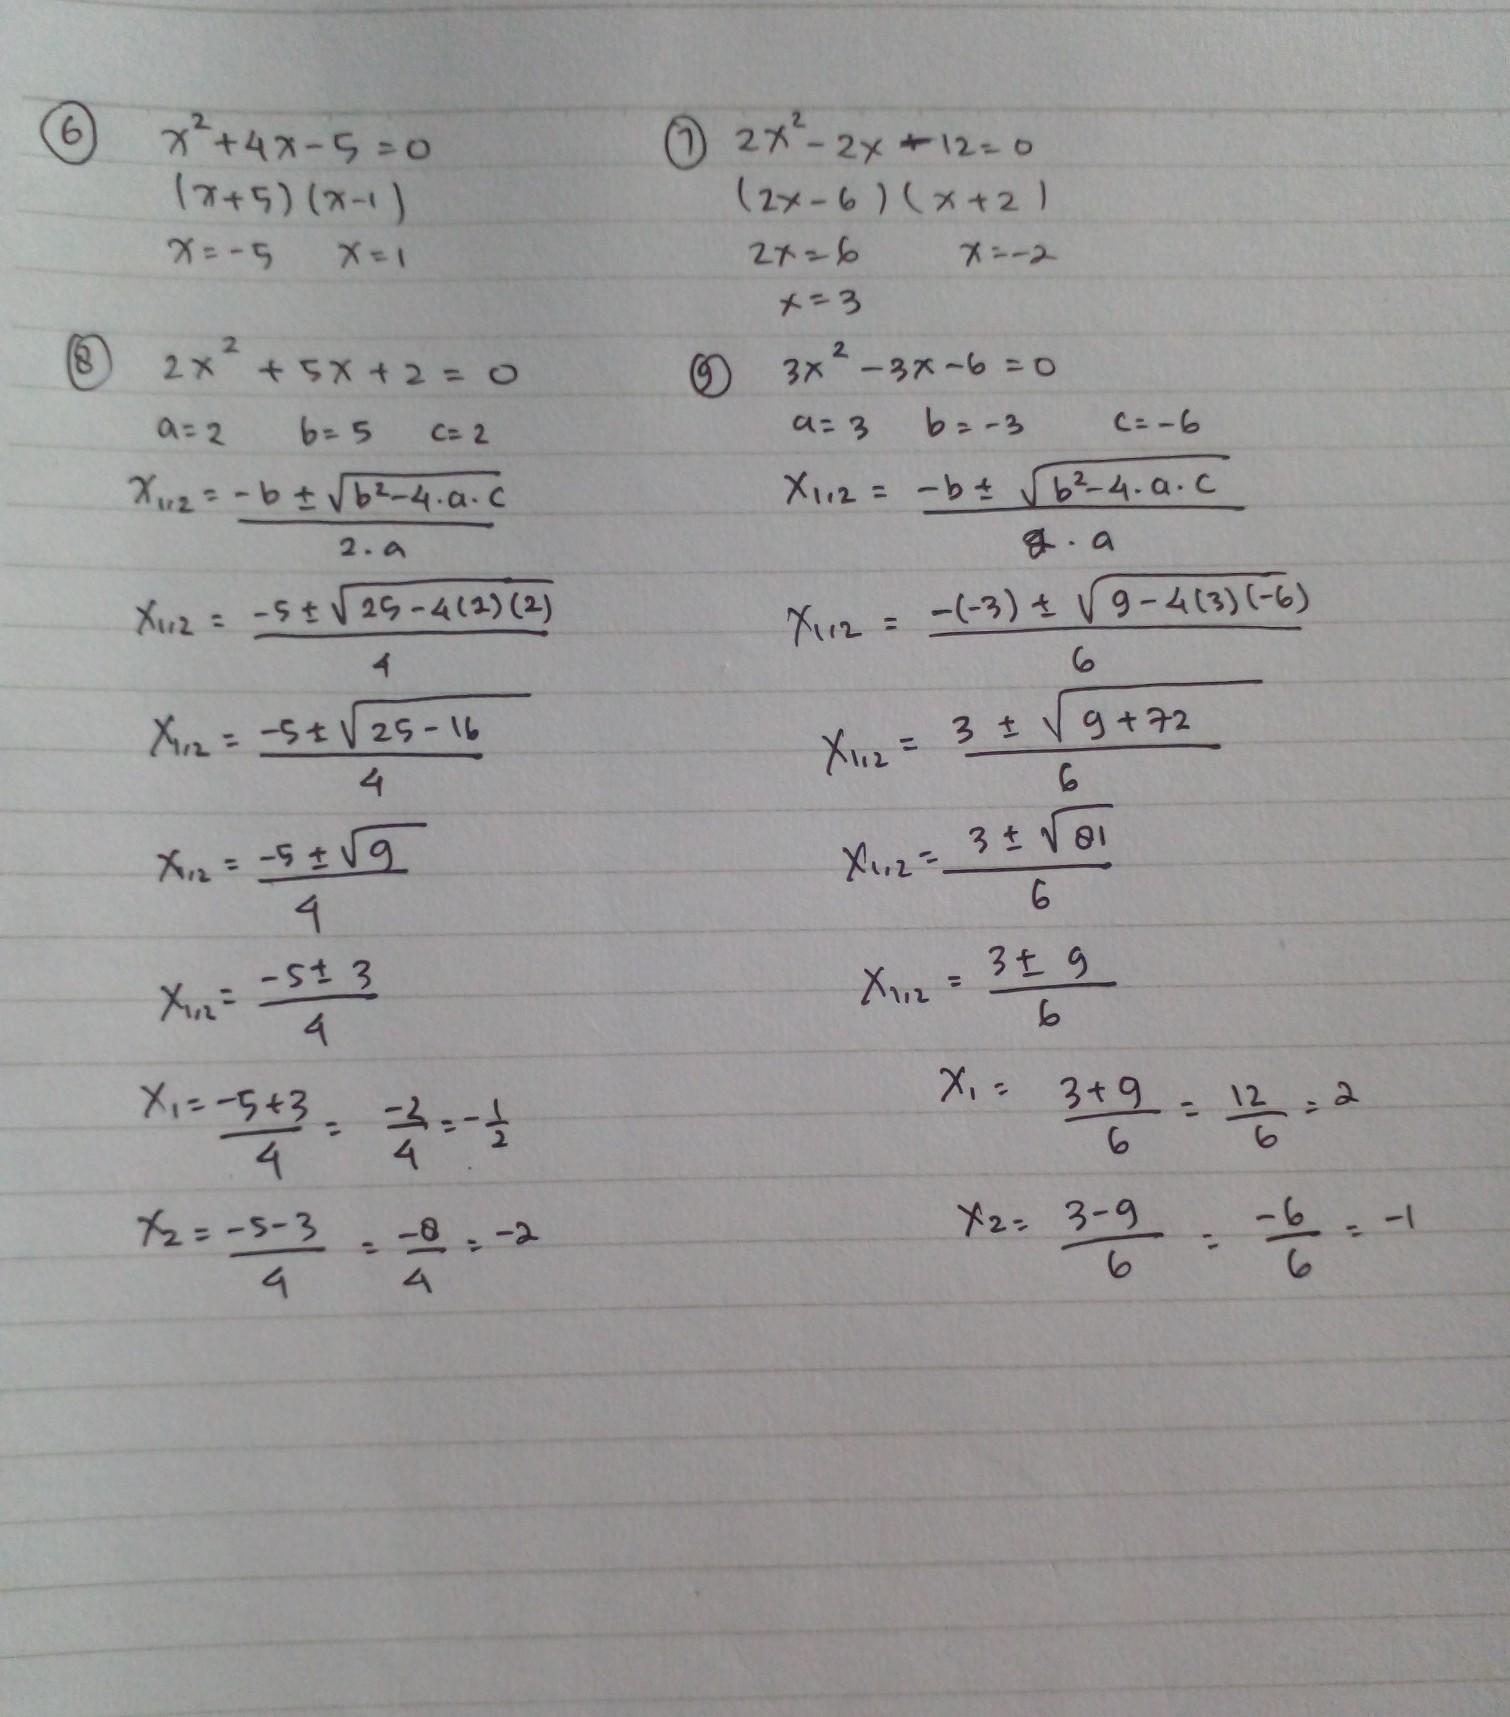 6 x²+4x-5=0
(x+5)(x-1)
x=-5 x=1
7 2x²-2x-12=0
(2x-6)(x+2)
2x=6 x=-2
x=3
8 2x²+5x+2=0
a=2 b=5 c=2
x₁,₂ = (-b ± √(b²-4.a.c))/(2.a)
x₁,₂ = (-5 ± √(25-4(2)(2)))/4
x₁,₂ = (-5 ± √(25-16))/4
x₁,₂ = (-5 ± √9)/4
x₁,₂ = (-5 ± 3)/4
x₁ = (-5+3)/4 = -2/4 = -1/2
x₂ = (-5-3)/4 = -8/4 = -2
9 3x²-3x-6=0
a=3 b=-3 c=-6
x₁,₂ = (-b ± √(b²-4.a.c))/(2.a)
x₁,₂ = (-(-3) ± √(9-4(3)(-6)))/6
x₁,₂ = (3 ± √(9+72))/6
x₁,₂ = (3 ± √81)/6
x₁,₂ = (3 ± 9)/6
x₁ = (3+9)/6 = 12/6 = 2
x₂ = (3-9)/6 = -6/6 = -1